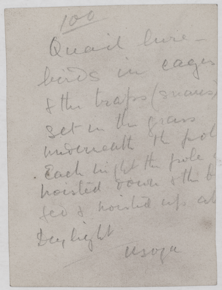 100
Quail lure -
birds in cages
& the traps (snares)
set in the grass
underneath the pol
. Each night the pole
hoisted down & the b
& hoisted up at
Daylight
Usoga